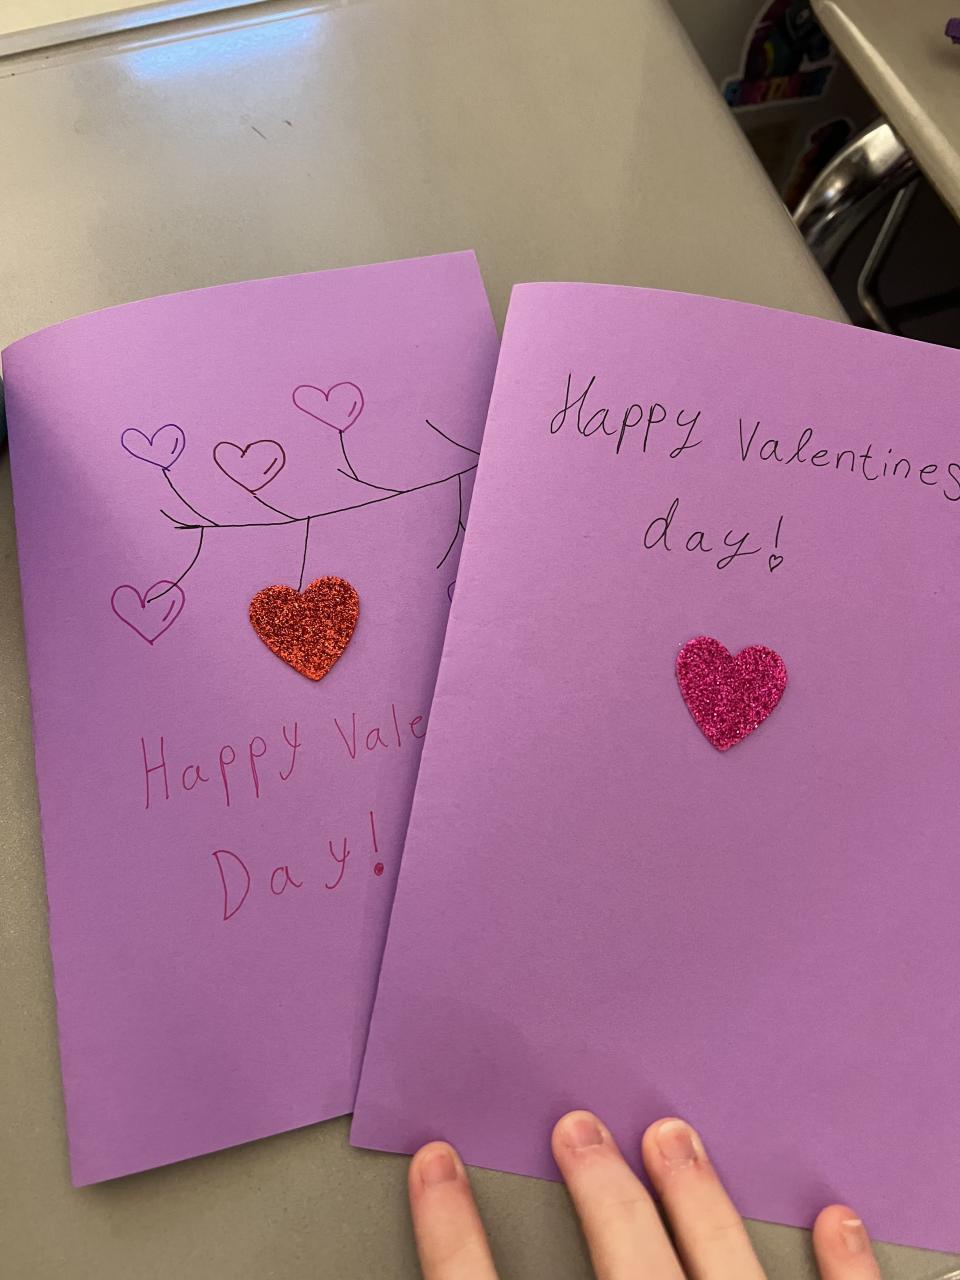 Happy Vale
Day!
Happy Valentines
day!